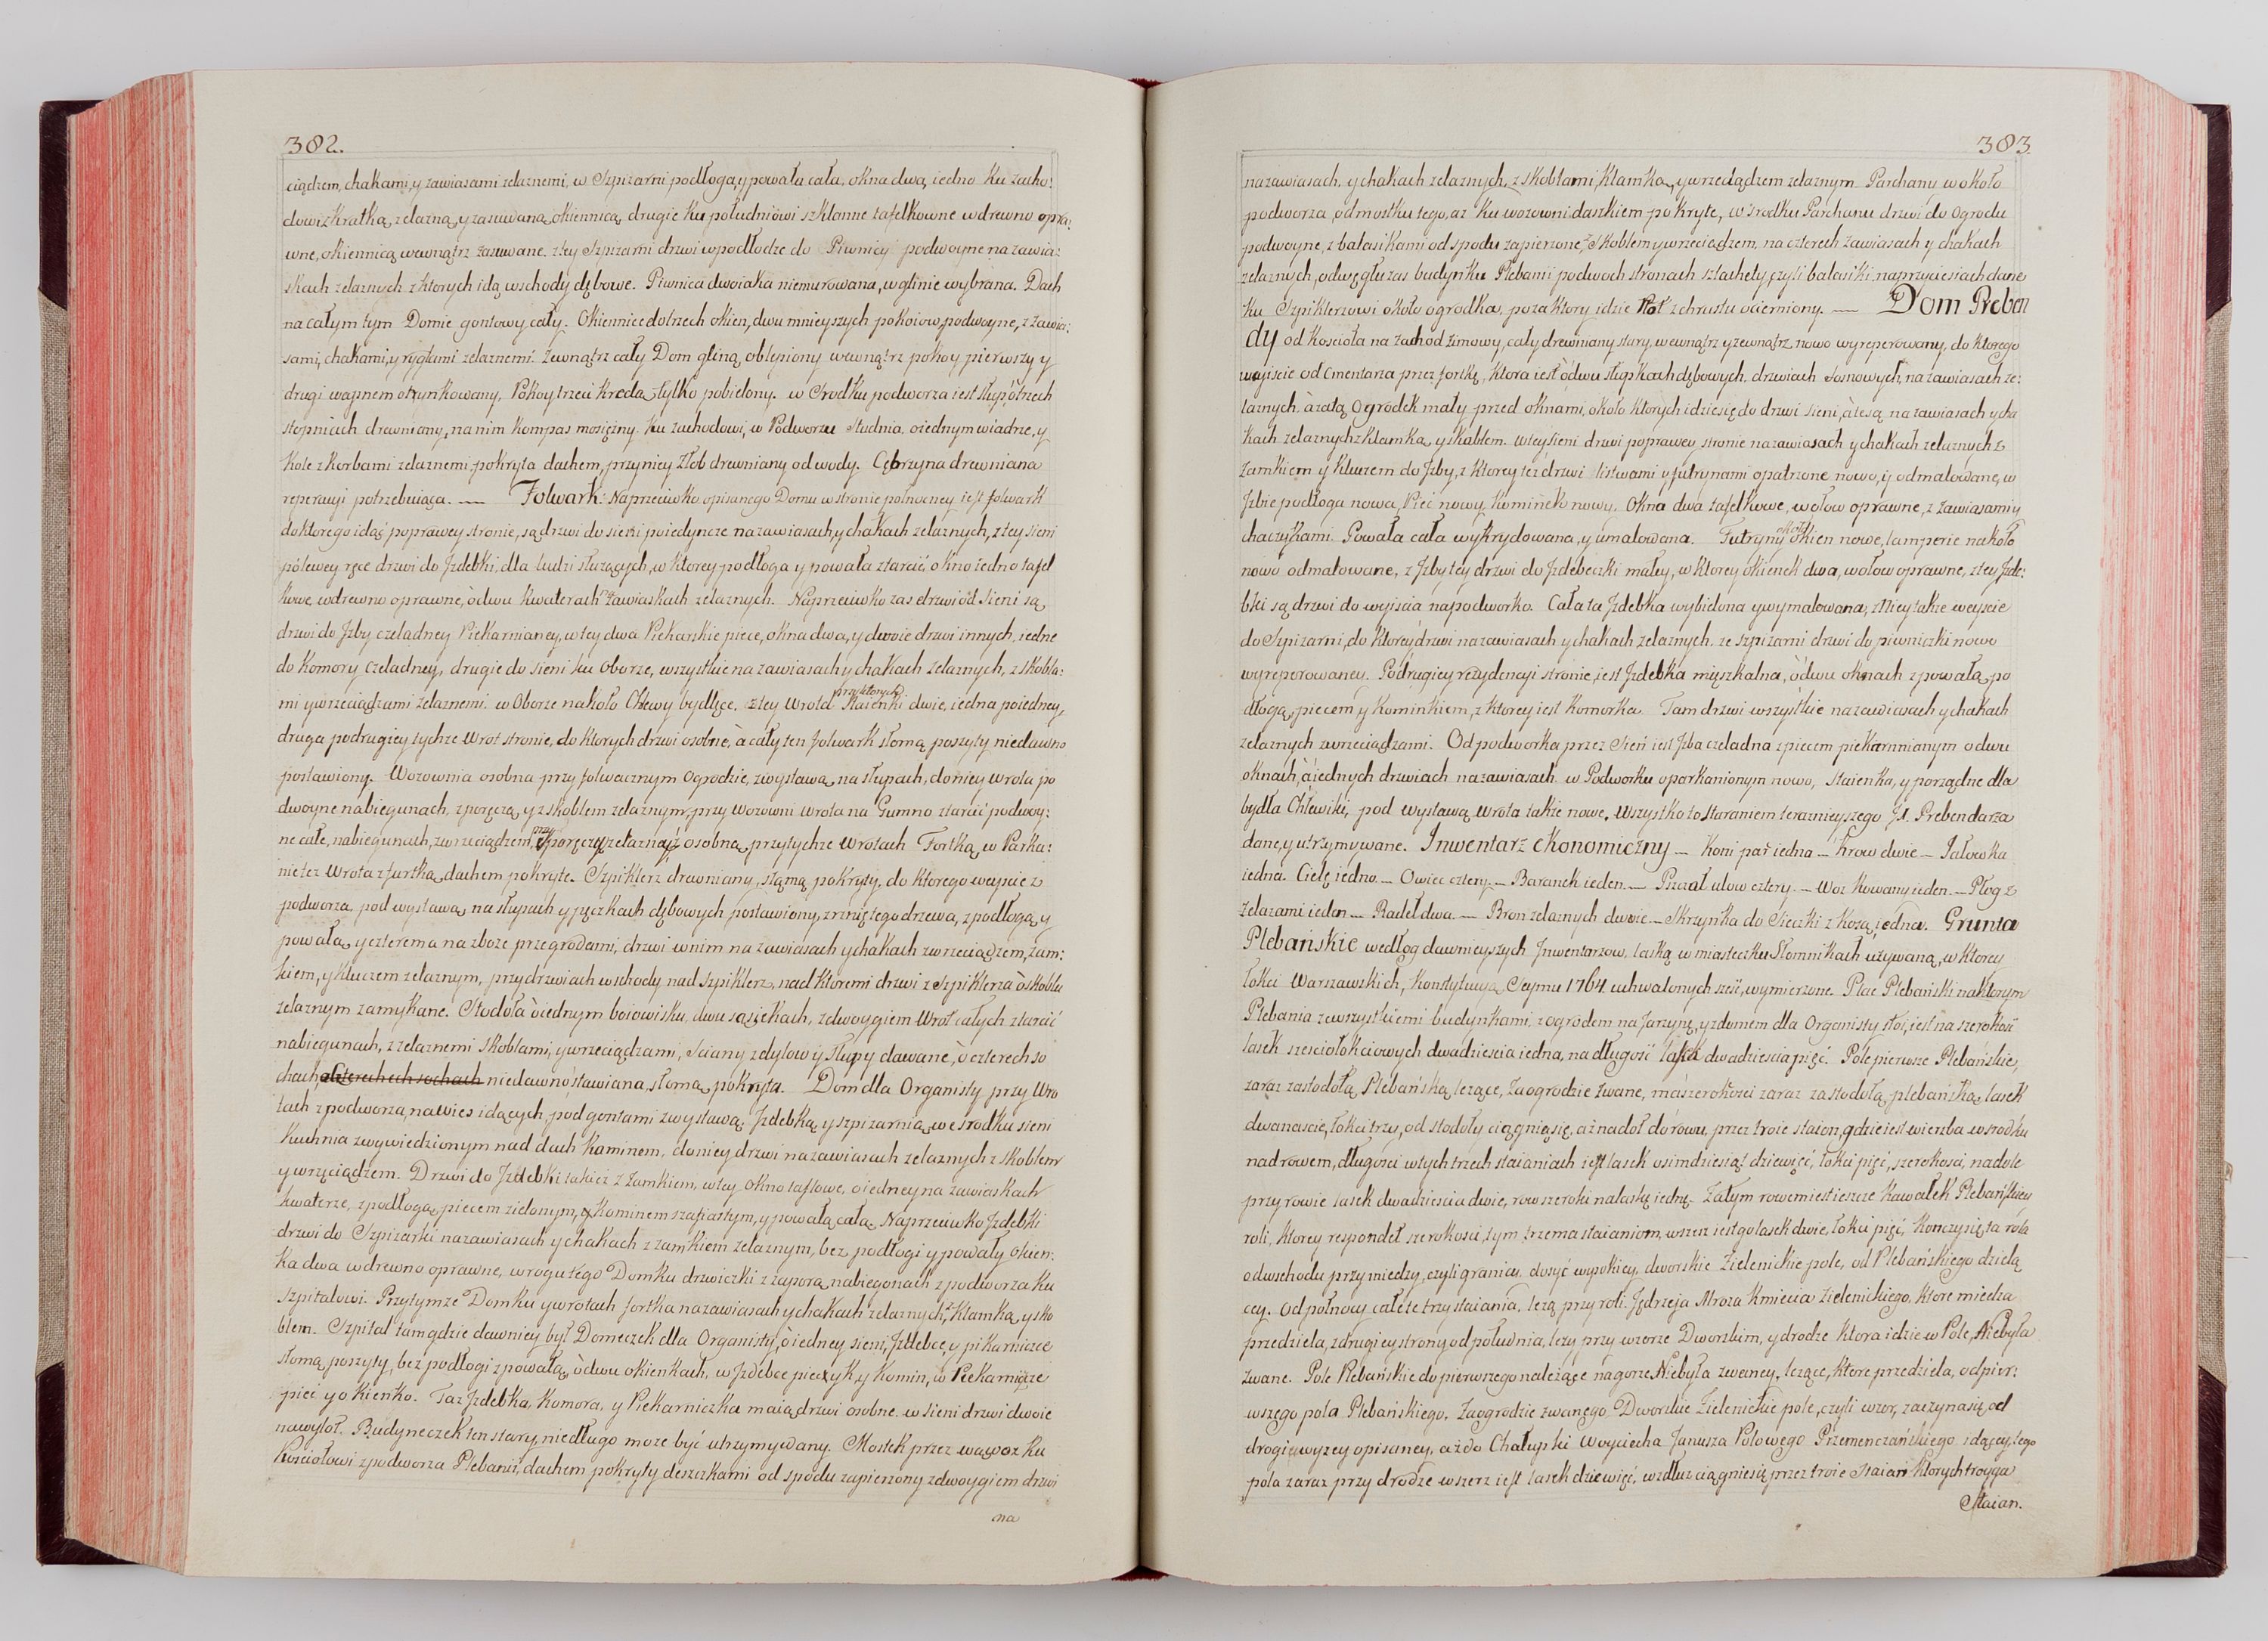 382.
ciądzem, chakami, y zawiasami zelaznemi, w Szpizarni podłoga, y powała cała, okna dwa, iedno ku zacho:
dowi z kratką zelazną, y zasuwaną okiennicą, drugie ku południowi szklanne tafelkowne w drewno opra:
wne, okiennicą wewnątrz zasuwane. z tey Szpizarni drzwi w podłodze do Piwnicy podwoyne na zawia:
skach zelaznych z ktorych idą wschody dębowe. Piwnica dwoiaka niemurowana, w glinie wybrana. Dach
na całym tym Domie gontowy cały. Okiennice do trzech okien, dwu mnieyszych pokoiow, podwoyne, z zawia:
sami, chakami, y ryglami zelaznemi. Zewnątrz cały Dom gliną oblepiony wewnątrz pokoy pierwszy y
drugi wapnem otynkowany, Pokoy trzeci kredą tylko pobielony. w Srodku podworza iest słup ò trzech
stopniach drewniany, na nim kompas mosięzny. Ku zachodowi, w Podworzu Studnia, o iednym wiadrze, y
Kole z korbami zelaznemi, pokryta dachem, przy niey Złob drewniany od wody. Cębrzyna drewniana
reperacyi potrzebuiąca. — Folwark: Naprzeciwko opisanego Domu w stronie pułnocney iest folwark
do ktorego idąc po prawey stronie, są drzwi do sieni poiedyncze na zawiasach, y chakach zelaznych, z tey sieni
po lewey ręce drzwi do Izdebki, dla ludzi służących, w ktorey podłoga y powała z tarcic, okno iedno tafel
kowe, w drewno oprawne, ò dwu kwaterach na zawiaskach zelaznych. Naprzeciwko zas drzwi od Sieni są
drzwi do Izby czeladney Piekarnianey, w tey dwa Piekarskie piece, okna dwa, y dwoie drzwi innych, iedne
do Komory Czeladney, drugie do sieni ku Oborze, wszystkie na zawiasach y chakach zelaznych, z skobla:
mi y wrzeciądzami zelaznemi. w Oborze nakoło Chlewy bydlęce. z tey Wrota przy ktorych Staienki dwie, iedna po iedney,
druga po drugiey tychze Wrot stronie, do ktorych drzwi osobne, à cały ten folwark słomą poszyty niedawno
postawiony. Wozownia osobna przy folwarcznym Ogrodzie, z wystawą na słupach, do niey wrota po
dwoyne na biegunach, z poręczą y z skoblem zelaznym, przy Wozowni wrota na Gumno z tarcic podwoy:
ne całe, na biegunach, z wrzeciądzem, przy poręczy zelaznay z osobną przy tychze Wrotach Fortką, w Parka:
nie tez Wrota z furtką dachem pokryte. Szpiklerz drewniany, słąmą pokryty, do ktorego weyscie z
podworza, pod wystawą na słupach y pęczkach dębowych postawiony, z rzniętego drzewa, z podłogą, y
powałą y czterema na zboze przegrodami, drzwi w nim na zawiasach y chakach z wrzeciądzem, zam:
kiem, y kluczem zelaznym, przy drzwiach wschody nad szpiklerz, nad ktoremi drzwi z Szpiklerza ò skoblu
zelaznym zamykane. Stodoła ò iednym boiowisku, dwu sąsiekach, z dwoygiem Wrot całych z tarcic
na biegunach, z zelaznemi skoblami, y wrzeciądzami, Sciany z dylow y słupy dawane, ò czterech so
chach, niedawno stawiana, słomą pokryta. Dom dla Organisty przy Wro
tach z podworza, na wies idących, pod gontami z wystawą, Izdebką y szpizarnią, we srodku sieni
Kuchnia z wywiedzionym nad dach kaminem, do niey drzwi na zawiasach zelaznych z skoblem
y wrzęciądzem. Drzwi do Izdebki takiez z zamkiem, w tey okno taflowe, o iedney na zawiaskach
kwaterze, z podłogą, piecem zielonym, y kominem szafiastym, y powałą całą. Naprzeciwko Izdebki
drzwi do Szpizarki na zawiasach y chakach z zamkiem zelaznym, bez podłogi y powały Okien:
ka dwa w drewno oprawne, w rogu tego Domku drzwiczki z zaporą na biegonach z podworza ku
Szpitalowi. Przy tymze Domku y wrotach fortka na zawiasach y chakach zelaznych, z klamką y sko
blem. Szpital tam gdzie dawniey był Domeczek dla Organisty, ò iedney sieni, Izdebce, y pikarniczce
słomą poszyty, bez podłogi z powałą, ò dwu okienkach, w Izdebce piecyk, y Komin, w Piekarniczce
piec y okienko. Taz Izdebka, Komora, y Piekarniczka maią drzwi osobne. w sieni drzwi dwoie
na wylot. Budyneczek ten stary, niedługo moze być utrzymywany. Mostek przez wąwoz ku
Kościołowi z podworza Plebanii, dachem pokryty deszczkami od spodu zapierzony z dwoygiem drzwi
na
383.
na zawiasach, y chakach zelaznych, z skoblami, klamką, y wrzeciądzem zelaznym. Parchany w około
podworza, od mostku tego, az ku wozowni daszkiem pokryte, w srodku Parchanu drzwi do Ogrodu
podwoyne, z balasikami od spodu zapierzone, z skoblem y wrzeciądzem, na czterech zawiasach y chakach
zelaznych, od węgłu zas budynku Plebanii po dwoch stronach sztachety, czyli balasiki na przyciesiach dane
ku Szpiklerzowi około ogrodka, poza ktory idzie Płot z chrustu ocierniony. — Dom Preben
dy od Koscioła na zachod zimowy, cały drewniany stary, wewnątrz y zewnątrz nowo wyreperowany, do ktorego
weyiscie od Cmentarza przez fortkę, ktora iest ò dwu słupkach dębowych, drzwiach sosnowych, na zawiasach ze:
laznych, à zatą Ogrodek mały przed oknami, około ktorych idzie się do drzwi sieni, à te są na zawiasach y cha
kach zelaznych z klamką y skoblem. w tey sieni drzwi po prawey stronie na zawiasach y chakach zelaznych z
zamkiem y kluczem do Izby, z ktorey tez drzwi listwami y futrynami opatrzone nowo, y odmalowane, w
Izbie podłoga nowa, Piec nowy, Kominek nowy. Okna dwa tafelkowe, w ołow oprawne, z zawiasami y
chaczykami. Powała cała wykrydowana, y umalowana. Futryny okoł okien nowe, lamperie nakoło
nowo odmalowane, z Izby tey drzwi do Izdebeczki małey, w ktorey okienek dwa, w ołow oprawne, z tey Izde:
bki są drzwi do wyjscia na podworko. Cała ta Izdebka wybielona y wymalowana, z Niey takze weyscie
do Szpizarni, do ktorey drzwi na zawiasach y chakach zelaznych. ze szpizarni drzwi do piwniczki nowo
wyreperowaney. Po drugiey rezydencyi stronie, iest Izdebka mięszkalna, ò dwu oknach z powałą, po
dłogą, piecem, y Kominkiem, z ktorey iest komorka. Tam drzwi wszystkie na zawiasach y chakach
zelaznych z wrzeciądzami. Od podworka przez Sień iest Izba czeladna z piecem piekarnnianym o dwu
oknach, à iednych drzwiach na zawiasach. w Podworku oparkanionym nowo, Staienka, y porządne dla
bydła Chlewiki, pod wystawą wrota takze nowe. Wszystko to staraniem terazniejszego JX. Prebendarza
dane, y utrzymywane. Inwentarz ekonomiczny — Koni par iedna — Krow dwie — Jałowka
iedna. Cielę iedno. — Owiec cztery. — Baranek ieden. — Pszczał ulow cztery. — Woz kowany ieden. — Pług z
zelazami ieden — Radeł dwa. — Bron zelaznych dwoie. — Skrzynka do Sieczki z kosą iedna. Grunta
Plebańskie według dawnieyszych Inwentarzow, laską w miasteczku Słomnikach używaną, w ktorey
łokci Warszawskich, Konstytucyą Seymu 1764. uchwalonych szesć, wymierzone. Plac Plebański na ktorym
Plebania z wszystkiemi budynkami, z ogrodem na Jarzynę, y z domem dla Organisty stoi, iest na szerokość
lasek szesciołokciowych dwadziescia iedna, na długość laska dwadziescia pięć. Pole pierwsze Plebańskie,
zaraz za stodołą Plebańską lezące, Zaogrodzie zwane, ma szerokosci zaraz za stodołą plebańską lasek
dwanascie, łokci trzy, od stodoły ciągnię się, az na doł do rowu, przez troie staian, gdzie iest wierzba w srodku
nad rowem, długosci w tych trzech staianiach iest lasek osimdziesiąt dziewięć, łokci pięć, szerokosci, na dole
przy rowie lasek dwadziescia dwie, row szeroki na laskę iednę. Za tym rowem iest ieszcze kawałek Plebańskiey
roli, ktorey respondet szerokosci, tym trzema staianiom, wszerz iest go lasek dwie, łokci pięć, Konczy się ta rola
od wschodu przy miedzy, czyli granicy, dosyć wysokiey, dworskie Zielenickie pole, od Plebańskiego dzielą
cey. Od pułnocy całe te trzy staiania, lezą przy roli Jędrzeja Mroza kmiecia Zielenickiego, ktore miedza
przedziela, z drugiey strony od południa, lezy przy wzorze Dworskim, y drodze ktora idzie w Pole, Niebyła
zwane. Pole Plebańskie do pierwszego nalezące na gorze Niebyła zwaney, lezące, ktore przedziela, od pier:
wszego pola Plebańskiego, Zaogrodzie zwanego Dworskie Zielenickie pole, czyli wzor, zaczyna się od
drogi wyzey opisaney, az do Chałupki Woyciecha Janusza Polowego Przemenczańskiego idącey, tego
pola zaraz przy drodze wszerz iest lasek dziewięć, wzdłuz ciągnie się przez troie Staian ktorych troyga
Staian.